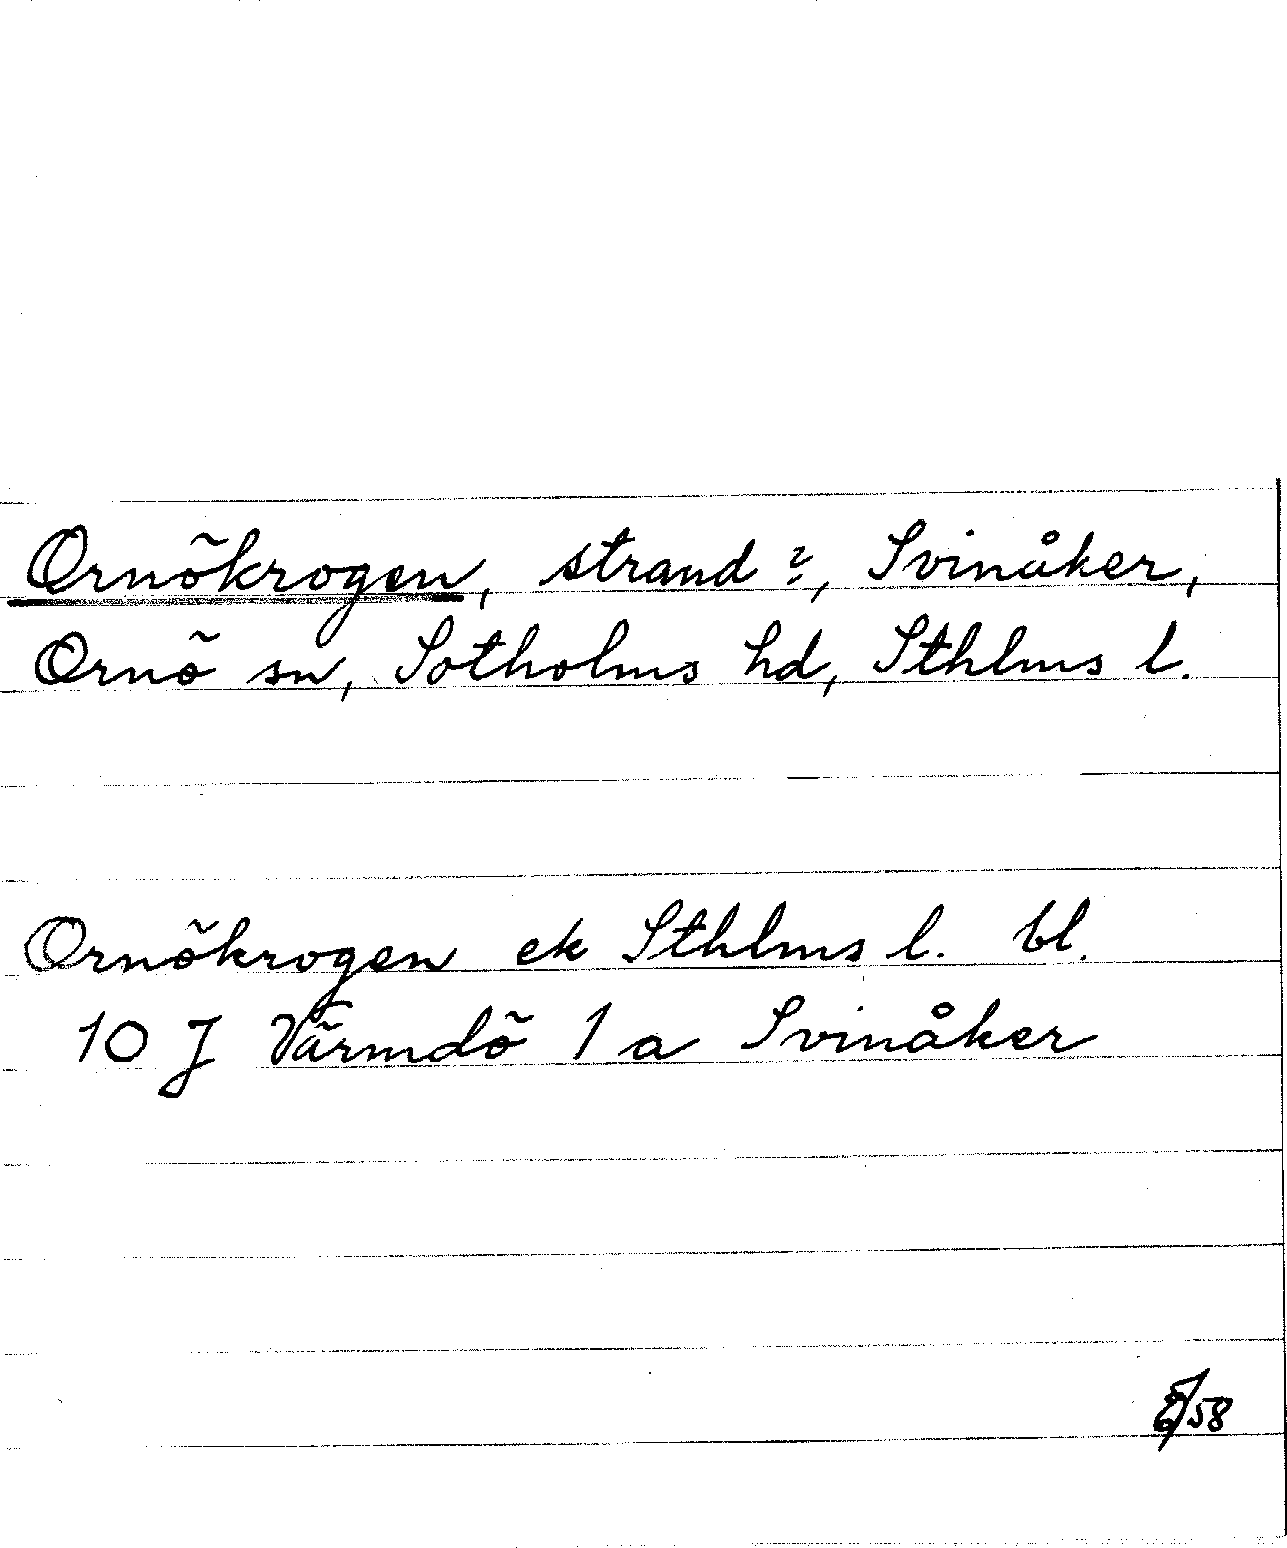 Ornökrogen, strand?, Svinåker,
Ornö sn, Sotholms hd, Sthlms l.
Ornökrogen ek Sthlms l. bl.
10 J Värmdö 1 a Svinåker
/58